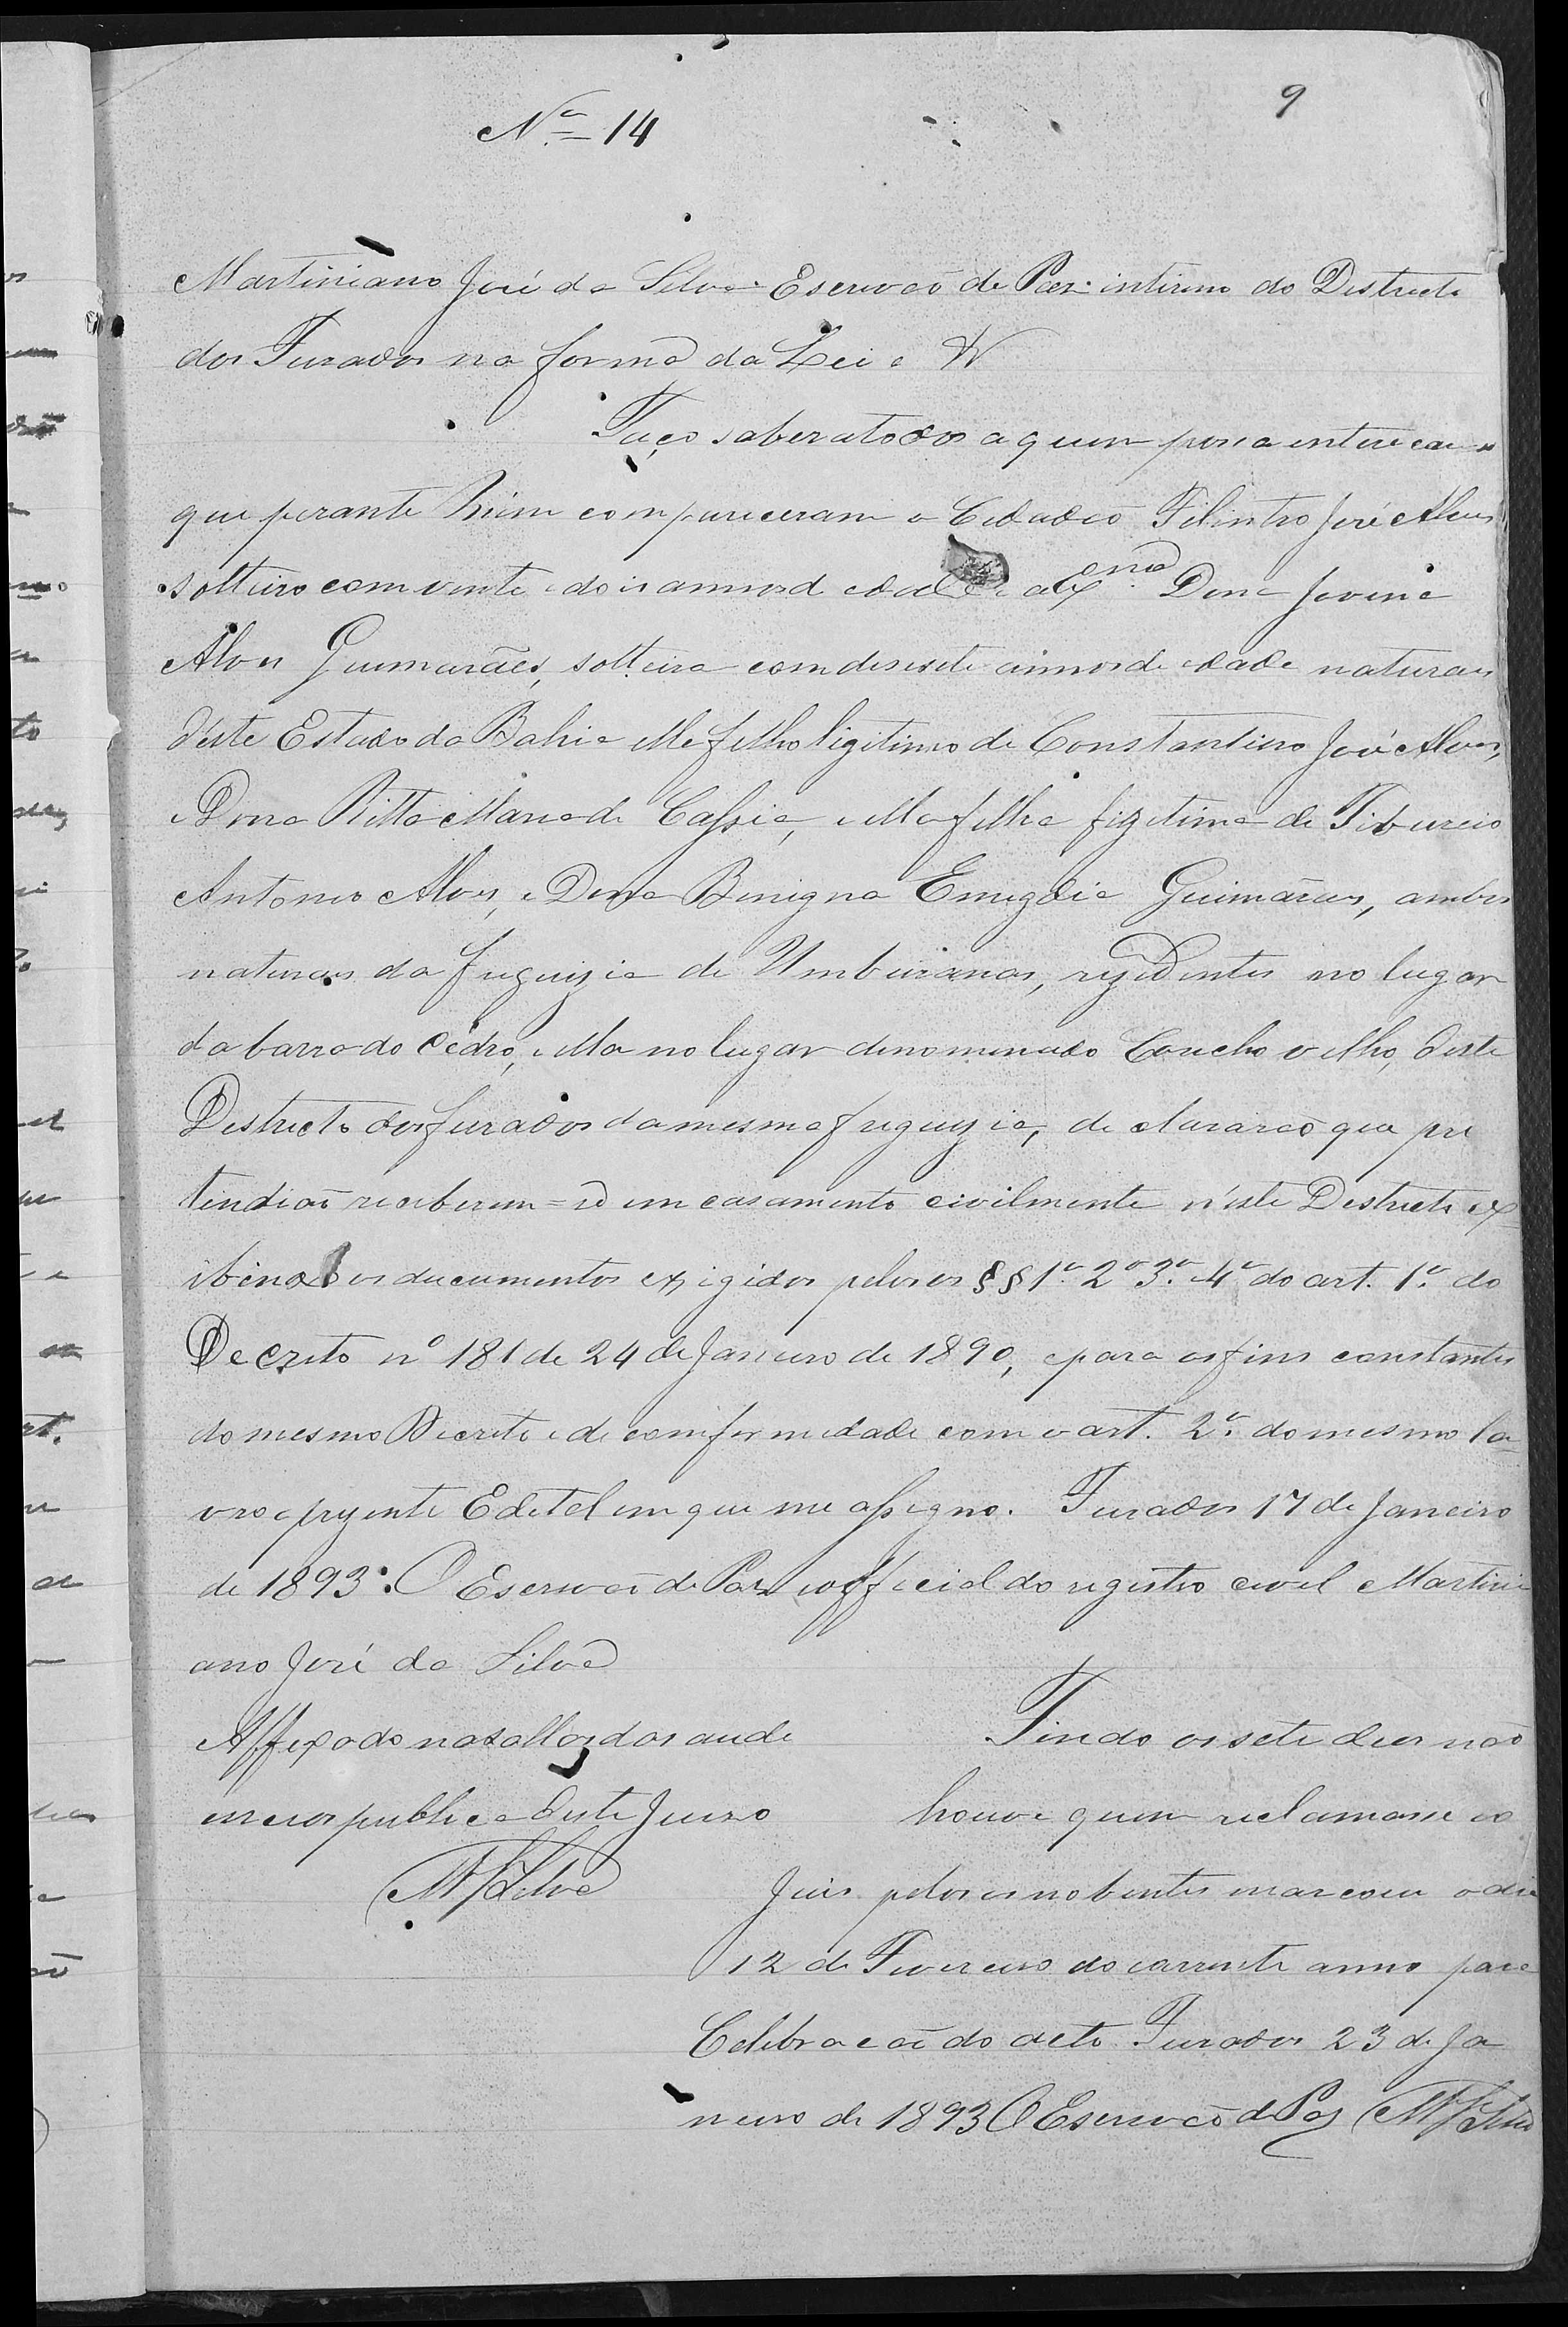 9
Nº 14
Martiniano José da Silva Escrivaõ de Paz intirino do Destricto
dos Furados na forma da Lei e &
Faço saber a todos a quem possa enterecar
que perante mim compareceram o Cidadaõ Filintro José Alves
solteiro com vinte e dois annos d edade e a Exma Dona Jovina
Alves Guimarães, solteira com desesete annos de edade naturaes
d'este Estado da Bahia elle filho ligitimo de Constantino José Alves,
e Dona Ritta Maria de Cassia, e ella filha ligitima de Tiburcio
Antonio Alves, e Dona Benigna Emigdia Guimarães, ambos
naturaes da freguizia de Umburanas, rezidentes no lugar
da barra do Cedro, e ella no lugar denominado Coucho velho, deste
Destricto dos furados da mesma freguizia, declararaõ que pre
tendiaõ receberem=se em casamento civilmente n'este Destricto ex
ibindo os documentos exigidos pelos os §§ 1º 2º 3º 4º do art. 1º do
Decreto nº 181 de 24 de Janeiro de 1890, e para os fins constantes
do mesmo Decreto e de comformidade com o art. 2º do mesmo la
vro o prezente Edetal em que me assigno. Furados 17 de Janeiro
de 1893. O Escrivaõ de Paz e official do registro civel Martini
ano José da Silva
Affixado na salla das audi
encias publica deste Juizo
MJSilva
Findo os sete dias naõ
houve quem reclamasse e o
Juis pelos os nobentes marcou o dia
12 de Fevereiro do corrente anno para
Celebracaõ do acto Furados 23 de Ja
neiro de 1893 O Escrivaõ de Paz MJSilva